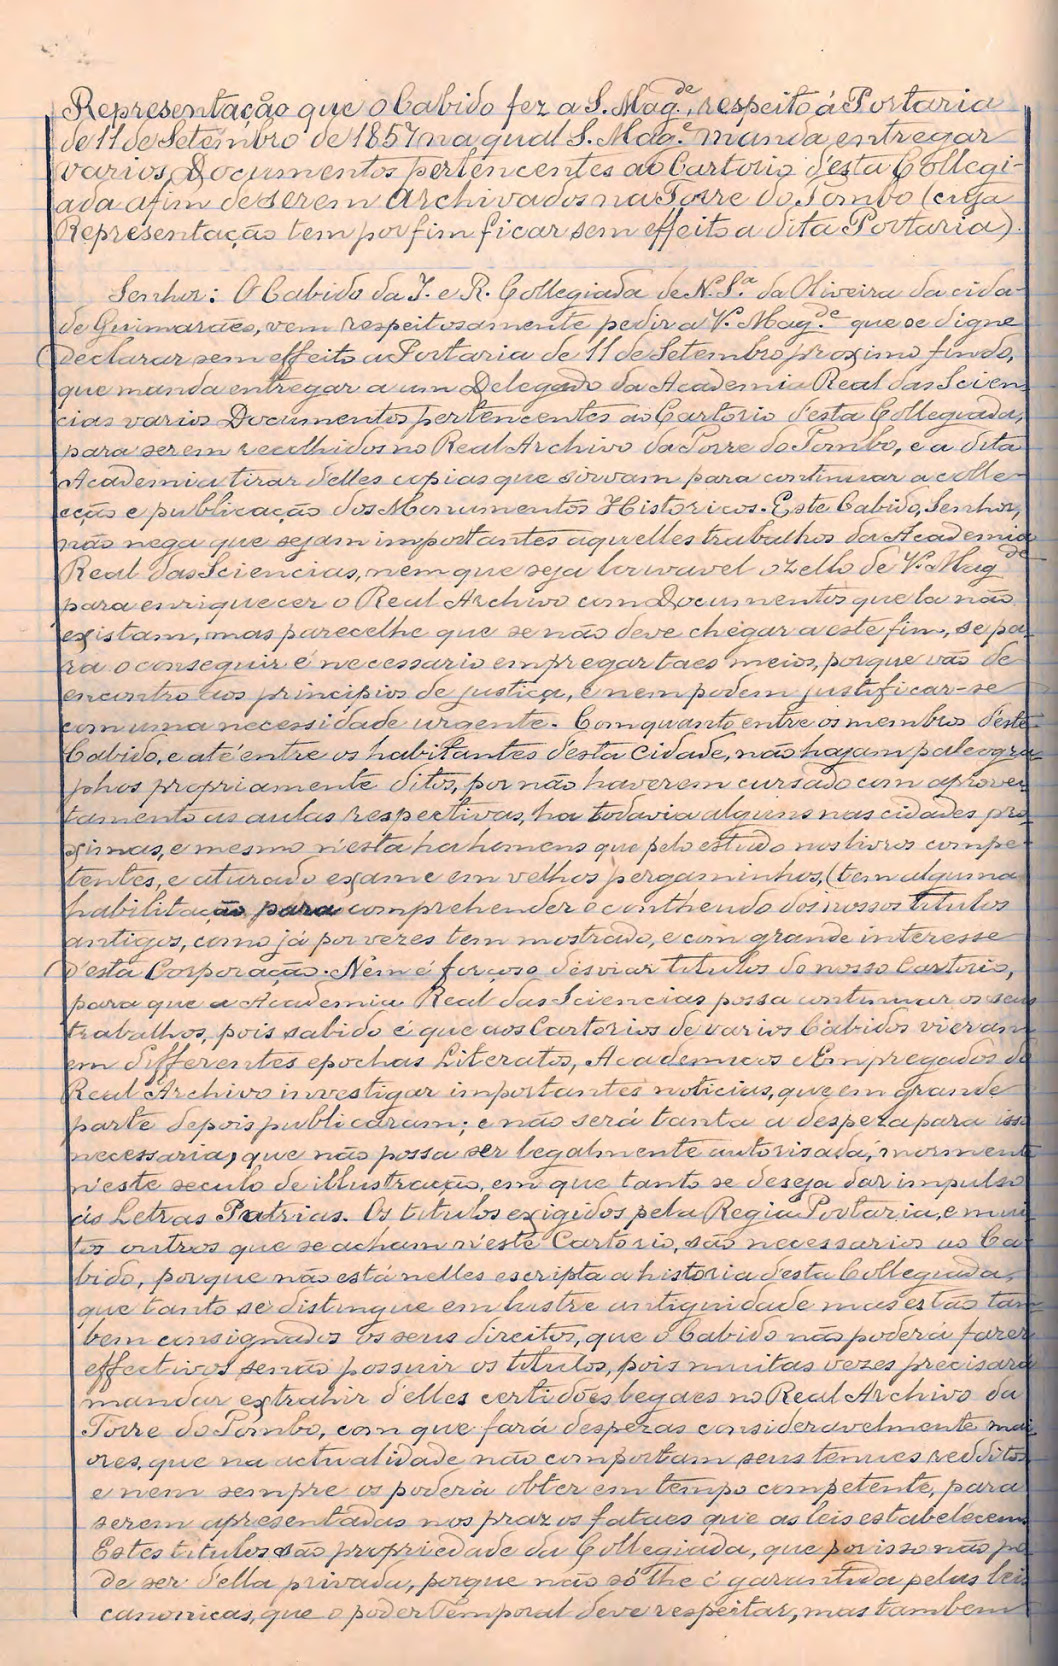 Representação que o Cabido fez a S. Mag.de, respeito á Portaria
de 11 de Setembro de 1857 na qual S. Mag.e manda entregar
varios Documentos pertencentes ao Cartorio d'esta Collegi-
ada afim de serem Archivados na Torre do Tombo (cuja
Representação tem por fim ficar sem effeito a dita Portaria).
Senhor: O Cabido da I. e R. Collegiada de N. S.a da Oliveira da cida-
de Guimarães, vem respeitosamente pedir a V. Mag.de que se digne
declarar sem effeito a Portaria de 11 de Setembro proximo findo,
que manda entregar a um Delegado da Academia Real das Scien-
cias varios Documentos pertencentes ao Cartorio d'esta Collegiada,
para serem recolhidos no Real Archivo da Torre do Tombo, e a dita
Academia tirar d'elles copias que sirvam para continuar a colle-
cção e publicação dos Monumentos Historicos. Este Cabido, Senhor,
não nega que sejam importantes aquelles trabalhos da Academia
Real das Sciencias, nem que seja louvavel o zello de V. Mag.de
para enriquecer o Real Archivo com Documentos que la não
existam, mas parecelhe que se não deve chegar a este fim, se pa-
ra o conseguir é necessario empregar taes meios, porque vão de
encontro aos principios de justiça, e nem podem justificar-se
com uma necessidade urgente. Comquanto entre os membros d'este
Cabido, e até entre os habitantes d'esta cidade, não hajam paleogra-
phos propriamente ditos, por não haverem cursado com aprovei-
tamento as aulas respectivas, ha todavia alguns nas cidades pro-
ximas, e mesmo n'esta ha homens que pelo estudo nos livros compe-
tentes, e aturado exame em velhos pergaminhos, (tem alguma
habilitação para comprehender o conthendo dos nossos titulos
antigos, como já por vezes tem mostrado, e com grande interesse
d'esta Corporação. Nem é forçoso desviar titulos do nosso Cartorio,
para que a Academia Real das Sciencias possa continuar os seus
trabalhos, pois sabido é que aos Cartorios de varios Cabidos vieram
em differentes epochas Literatos, Academicos e Empregados do
Real Archivo investigar importantes noticias, que em grande
parte depois publicaram; e não será tanta a despeza para isso
necessaria, que não possa ser legalmente autorisada, morment
n'este seculo de illustração, em que tanto se deseja dar impulso
ás Letras Patrias. Os titulos exigidos pela Regia Portaria, e mui-
tos outros que se acham n'este Cartorio, são necessarios ao Ca-
bido, porque não está nelles escripta a historia d'esta Collegiada,
que tanto se distingue em lustre antiguidade mas estão tam-
bem consignados os seus direitos, que o Cabido não poderá fazer
effectivos senão possuir os titulos, pois muitas vezes precisará
mandar extrahir d'elles certidões legaes no Real Archivo da
Torre do Tombo, com que fará despezas consideravelmente mai-
ores, que na actualidade não comportam seus tenues redditos
e nem sempre os poderá obter em tempo competente, para
serem apresentadas nos prazos fataes que as leis estabelecem.
Estes titulos são propriedade da Collegiada, que por isso não po-
de ser d'ella privada, porque não só lhe é garantida pelas leis
canonicas, que o poder temporal deve respeitar, mas tambem